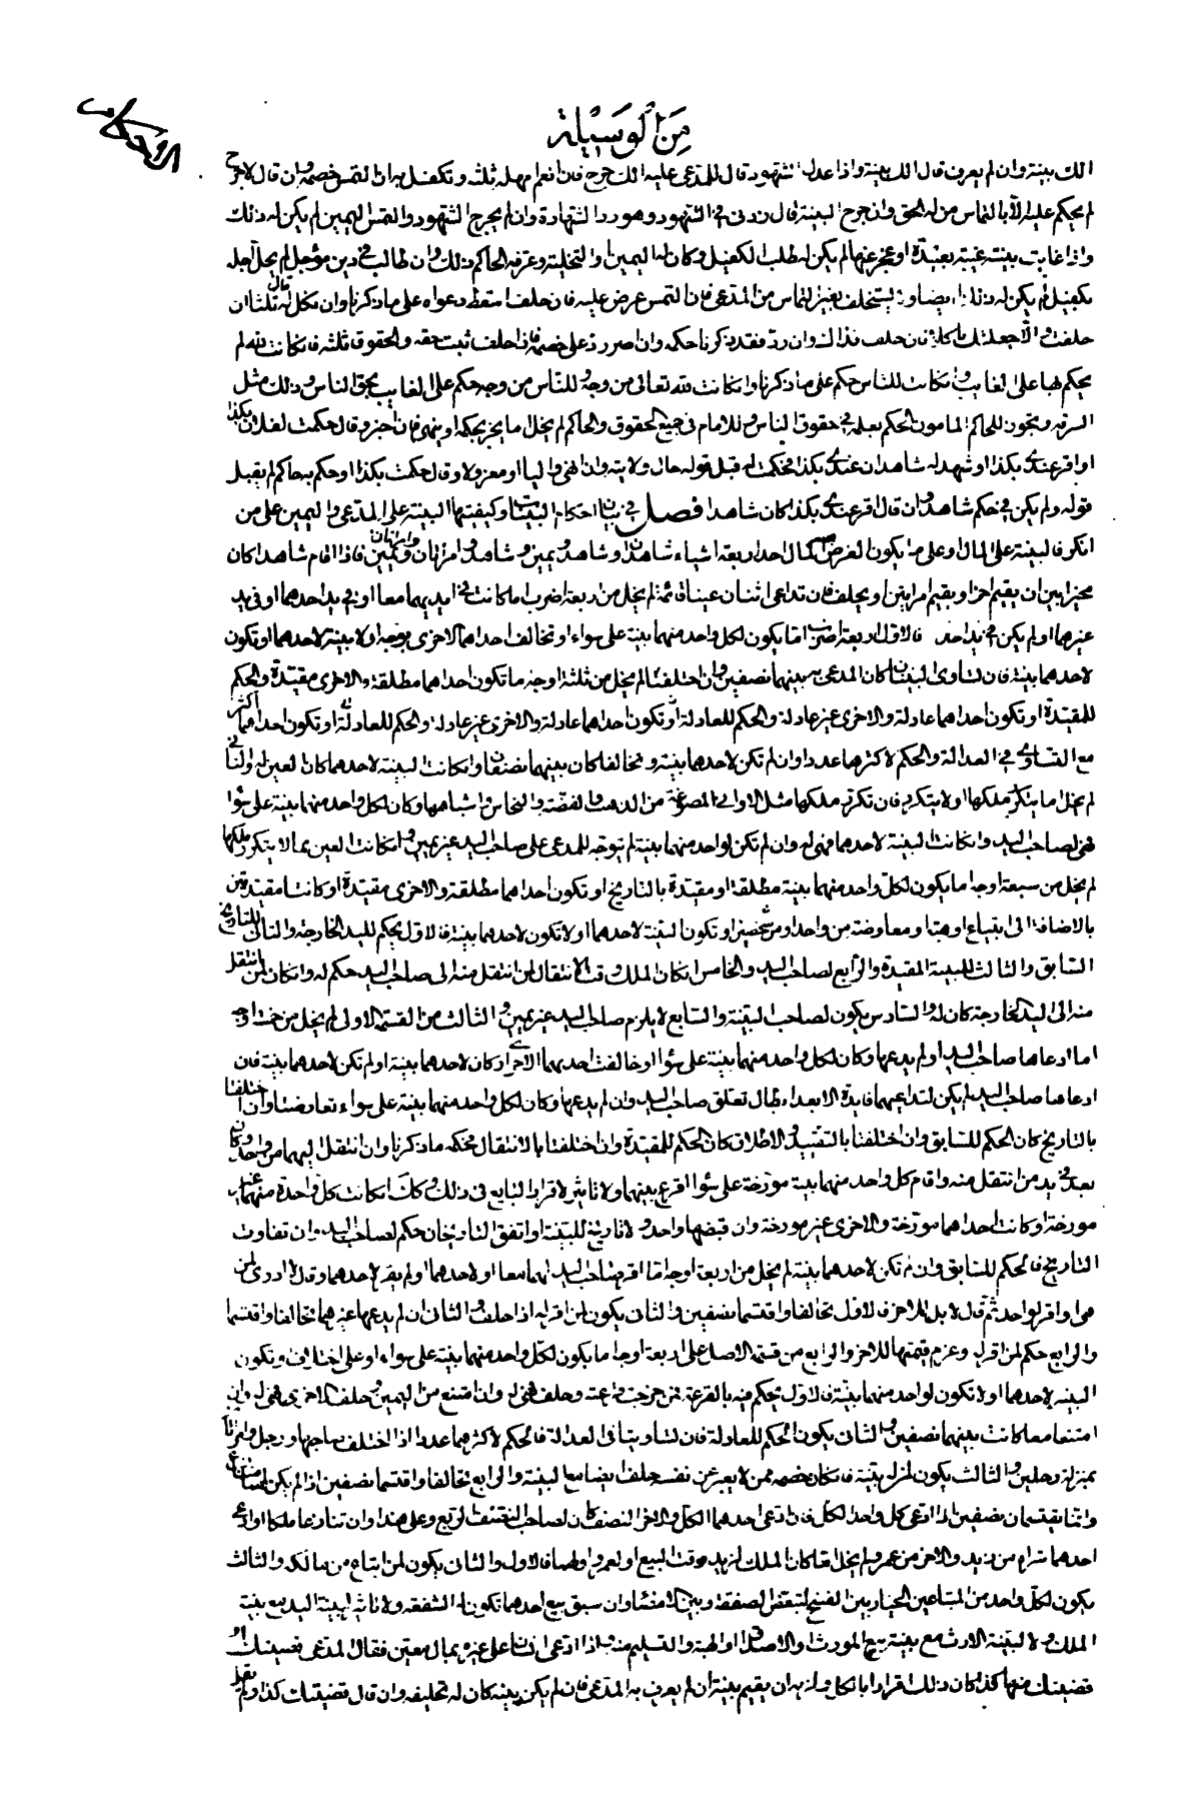 الاحكام
من الوسيلة
الك بينة وان لم يعرف قال الك بينة واذا عدل الشهود قال للمدعى عليه الك جرح فان انعم مهله ثلثه وتكفل به ان التمس خصمه وان قال لا جرح
لم يحكم عليه الا بالتماس من له الحق وان جرح البينة قال زدنى في الشهود وهو رد الشهادة وان لم يجرح الشهود والتمس اليمين لم يكن له ذلك
واذا غابت بينته غيبة بعيدة او عجز عنها لم يكن له طلب الكفيل وكان له اليمين او التخلية وعرفه الحاكم ذلك وان طالب في دين مؤجل لم يحل اجله
بكفيل لم يكن له ذلك ايضا و يستحلف بغير التماس من المدعى فان التمس عرض عليه فان حلف اسقط دعواه على ما ذكرنا وان نكل قال له ثلثا ان
حلفت والا جعلتك ناكلا فان حلف فذاك وان رد فقد ذكرنا حكمه وان اصر رد على خصمه فاذا حلف ثبت حقه والحقوق ثلثه فان كانت لله لم
يحكم بها على الغايب وان كانت للناس حكم على ما ذكرنا وان كانت لله تعالى من وجه وللناس من وجه حكم على الغايب بحق الناس وذلك مثل
السرقه ويجوز للحاكم المامون الحكم بعلمه في حقوق الناس وللامام في جميع الحقوق والحاكم لم يخل اما يخبر بحكمه او ينهى فان اخبر وقال حكمت لفلان بكذا
او اقر عندى بكذا او شهد له شاهدان عندى بكذا فحكمت له قبل قوله حال ولايته وان انهى واليا او معزولا وقال حكمت بكذا او حكم به حاكم لم يقبل
قوله ولم يكن في حكم شاهد وان قال اقر عندى بكذا كان شاهدا فصل في بيان احكام البينات وكيفيتها البينة على المدعى واليمين على من
انكر فالبينة على المال او على ما يكون الغرض منه المال احد اربعة اشياء شاهدان وشاهد ويمين وشاهد وامراتان وامراتان ويمين فاذا اقام شاهدا كان
مخيرا بين ان يقيم اخر او يقيم امراتين او يحلف فان تداعى اثنان عينا قائمة لم يخل من اربعة اضرب اما كانت في ايديهما معا او في يد احدهما او في يد
غيرهما او لم يكن في يد احد فالاول اربعة اضرب اما يكون لكل واحد منهما بينة على سواء او تخالف احداهما الاخرى بوجه او لا بينة لاحدهما او تكون
لاحدهما بينة فان تساوى البينتان كان المدعى به بينهما نصفين وان اختلفتا لم يخل من ثلثة اوجه اما تكون احداهما مطلقة والاخرى مقيدة والحكم
للمقيدة او تكون احداهما عادلة والاخرى غير عادلة والحكم للعادلة او تكون احداهما عادلة والاخرى غير عادلة والحكم للعادلة او تكون احداهما اكثر
مع التساوى في العدالة والحكم لاكثرهما عددا وان لم تكن لاحدهما بينة وتحالفا كان بينهما نصفان وان كانت البينة لاحدهما كان العين له والثانى
لم يخل اما يتكرر ملكها او لا يتكرر فان تكرر ملكها مثل الاوانى المصوغة من الذهب والفضة والنحاس واشباهها وكان لكل واحد منهما بينة على سواء
فهى لصاحب اليد وان كانت البينة لاحدهما فهى له وان لم تكن لواحد منهما بينة لم يتوجه للمدعى على صاحب اليد غير يمين وان كانت العين مما لا يتكرر ملكها
لم يخل من سبعة اوجه اما يكون لكل واحد منهما بينة مطلقة او مقيدة بالتاريخ او تكون احداهما مطلقة والاخرى مقيدة او كانتا مقيدتين
بالاضافة الى ابتياع او هبة او معاوضة من واحد او من شخصين او تكون البينة لاحدهما او لا تكون لاحدهما بينة فالاول يحكم لليد الخارجة والثانى للتاريخ
السابق والثالث للبينة المقيدة والرابع لصاحب اليد والخامس ان كان الملك وقت الانتقال لمن انتقل منه الى صاحب اليد حكم له وان كان لمن انتقل
منه الى اليد الخارجة كان له والسادس يكون لصاحب البينة والسابع لا يلزم صاحب اليد غير يمين والثالث من القسمة الاولى لم يخل من خمسة اوجه
اما ادعاها صاحب اليد او لم يدعها وكان لكل واحد منهما بينة على سواء او خالفت احديهما الاخرى او كان لاحدهما بينة او لم تكن لاحدهما بينة فان
ادعاها صاحب اليد لم يكن لتداعيهما فايدة الا بعد ابطال تعلق صاحب اليد وان لم يدعها وكان لكل واحد منهما بينة على سواء تعارضتا وان اختلفتا
بالتاريخ كان الحكم للسابق وان اختلفتا بالتقييد والاطلاق كان الحكم للمقيدة وان اختلفتا بالانتقال فحكمه ما ذكرنا وان انتقل اليهما من واحد وكان
بعد في يد من انتقل منه واقام كل واحد منهما بينة مورخة على سواء اقرع بينهما ولا تاثير لاقرار البايع في ذلك وكذلك ان كانت كل واحدة منهما غير
مورخة او كانت احداهما مورخة والاخرى غير مورخة وان قبضها واحد ولا تاريخ للبينة او اتفق التاريخان حكم لصاحب اليد وان تفاوت
التاريخ فالحكم للسابق وان لم تكن لاحدهما بينة لم يخل من اربعة اوجه اما اقر صاحب اليد لهما معا او لاحدهما او لم يقر لاحدهما وقال لا ادرى لمن
هى او اقر لواحد ثم قال لا بل للاخر فالاول تحالفا واقتسما نصفين والثانى يكون لمن اقر له اذا حلف والثالث ان لم يدعها غيرهما تحالفا واقتسما
والرابع حكم لمن اقر له وغرم قيمتها للاخر والرابع من قسمة الاصل على اربعة اوجه اما يكون لكل واحد منهما بينة على سواء او على اختلاف وتكون
البينه لاحدهما او لا تكون لواحد منهما بينة فالاول يحكم فيه بالقرعة فمن خرجت قرعته وحلف فهى له وان امتنع من اليمين وحلف الاخر فهى له وان
امتنعا معا كانت بينهما نصفين والثانى يكون الحكم للعادلة فان تساويتا فى العدالة فالحكم لاكثرهما عددا اذا اختلف بهاجها ورجل وامراتان
بمنزلة رجلين والثالث يكون لمن له بينة فان كان خصمه ممن لا يعبر عن نفسه حلف ايضا مع البينة والرابع تحالفا واقتسما نصفين اذا لم يكن لهما منازع
وانما يقتسمان نصفين اذا ادعى كل واحد الكل فان ادعى احدهما الكل والاخر النصف كان لصاحب النصف الربع وعلى هذا وان تنازعا ملكا وادعى
احدهما شراه من زيد والاخر من عمرو لم يخل اما كان الملك لزيد وقت البيع او لعمرو او لهما فالاول والثانى يكون لمن ابتاع من مالكه والثالث
يكون لكل واحد من المتباعين الخيار بين الفسخ لتبعض الصفقة وبين الامضاء وان سبق بيع احدهما تكون له الشفعه ولا تاثير لبينة اليد مع بينة
الملك ولا لبينة الارث مع بينة بيع المورث او الاصداق او الهبة والتسليم منه واذا ادعى انسان على غيره بمال معين فقال المدعى قضيتك او
قضيتك منها كذا كان ذلك اقرارا بالكل ولزمه ان يقيم بينة ان لم يعرف به المدعى فان لم يكن بينه كان له تحليفه وان قال قضيتك كذا ولم يقل